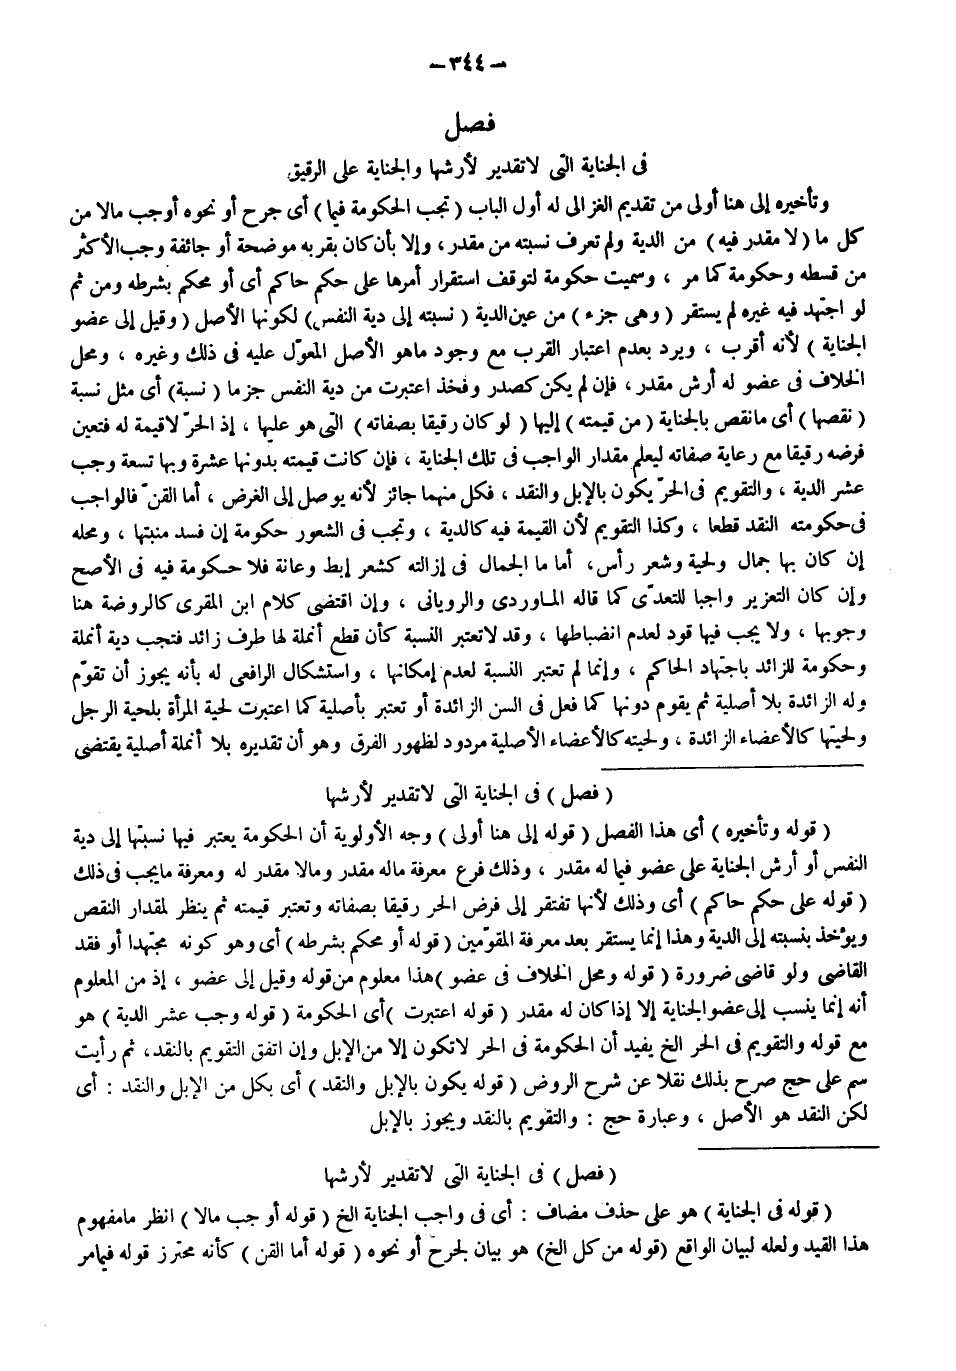 — ٣٤٤ —
فصل
فى الجناية التى لاتقدير لأرشها والجناية على الرقيق
وتأخيره إلى هنا أولى من تقديم الغزالى له أول الباب ( تجب الحكومة فيما ) أى جرح أو نحوه أوجب مالا من
كل ما ( لا مقدر فيه ) من الدية ولم تعرف نسبته من مقدر ، وإلا بأن كان بقربه موضحة أو جائفة وجب الأكثر
من قسطه وحكومة كما مر ، وسميت حكومة لتوقف استقرار أمرها على حكم حاكم أى أو محكم بشرطه ومن ثم
لو اجتهد فيه غيره لم يستقر ( وهى جزء ) من عين الدية ( نسبته إلى دية النفس ) لكونها الأصل ( وقيل إلى عضو
الجناية ) لأنه أقرب ، ويرد بعدم اعتبار القرب مع وجود ماهو الأصل المعوّل عليه فى ذلك وغيره ، ومحل
الخلاف فى عضو له أرش مقدر ، فإن لم يكن كصدر وفخذ اعتبرت من دية النفس جزما ( نسبة ) أى مثل نسبة
( نقصها ) أى مانقص بالجناية ( من قيمته ) إليها ( لو كان رقيقا بصفاته ) التى هو عليها ، إذ الحرّ لاقيمة له فتعين
فرضه رقيقا مع رعاية صفاته ليعلم مقدار الواجب فى تلك الجناية ، فإن كانت قيمته بدونها عشرة وبها تسعة وجب
عشر الدية ، والتقويم فى الحرّ يكون بالإبل والنقد ، فكل منهما جائز لأنه يوصل إلى الغرض ، أما القنّ فالواجب
فى حكومته النقد قطعا ، وكذا التقويم لأن القيمة فيه كالدية ، وتجب فى الشعور حكومة إن فسد منبتها ، ومحله
إن كان بها جمال ولحية وشعر رأس، أما ما الجمال فى إزالته كشعر إبط وعانة فلا حكومة فيه فى الأصح
وإن كان التعزير واجبا للتعدّى كما قاله الماوردى والرويانى ، وإن اقتضى كلام ابن المقرى كالروضة هنا
وجوبها ، ولا يجب فيها قود لعدم انضباطها ، وقد لاتعتبر النسبة كأن قطع أنملة لها طرف زائد فتجب دية أنملة
وحكومة للزائد باجتهاد الحاكم ، وإنما لم تعتبر النسبة لعدم إمكانها ، واستشكال الرافعى له بأنه يجوز أن تقوّم
وله الزائدة بلا أصلية ثم يقوم دونها كما فعل فى السن الزائدة أو تعتبر بأصلية كما اعتبرت لحية المرأة بلحية الرجل
ولحيتها كالأعضاء الزائدة ، ولحيته كالأعضاء الأصلية مردود لظهور الفرق وهو أن تقديره بلا أنملة أصلية يقتضى
( فصل ) فى الجناية التى لاتقدير لأرشها
( قوله وتأخيره ) أى هذا الفصل ( قوله إلى هنا أولى ) وجه الأولوية أن الحكومة يعتبر فيها نسبتها إلى دية
النفس أو أرش الجناية على عضو فيما له مقدر ، وذلك فرع معرفة ماله مقدر ومالا مقدر له ومعرفة مايجب فى ذلك
( قوله على حكم حاكم ) أى وذلك لأنها تفتقر إلى فرض الحر رقيقا بصفاته وتعتبر قيمته ثم ينظر لمقدار النقص
ويؤخذ بنسبته إلى الدية وهذا إنما يستقر بعد معرفة المقوّمين ( قوله أو محكم بشرطه ) أى وهو كونه مجتهدا أو فقد
القاضى ولو قاضى ضرورة ( قوله ومحل الخلاف فى عضو ) هذا معلوم من قوله وقيل إلى عضو ، إذ من المعلوم
أنه إنما ينسب إلى عضو الجناية إلا إذا كان له مقدر ( قوله اعتبرت ) أى الحكومة ( قوله وجب عشر الدية ) هو
مع قوله والتقويم فى الحر الخ يفيد أن الحكومة فى الحر لاتكون إلا من الإبل وإن اتفق التقويم بالنقد، ثم رأيت
سم على حج صرح بذلك نقلا عن شرح الروض ( قوله يكون بالإبل والنقد ) أى بكل من الإبل والنقد : أى
لكن النقد هو الأصل ، وعبارة حج : والتقويم بالنقد ويجوز بالإبل
( فصل ) فى الجناية التى لاتقدير لأرشها
( قوله فى الجناية ) هو على حذف مضاف : أى فى واجب الجناية الخ ( قوله أوجب مالا ) انظر مامفهوم
هذا القيد ولعله لبيان الواقع ( قوله من كل الخ ) هو بيان لجرح أو نحوه ( قوله أما القن ) كأنه محترز قوله فيما مر